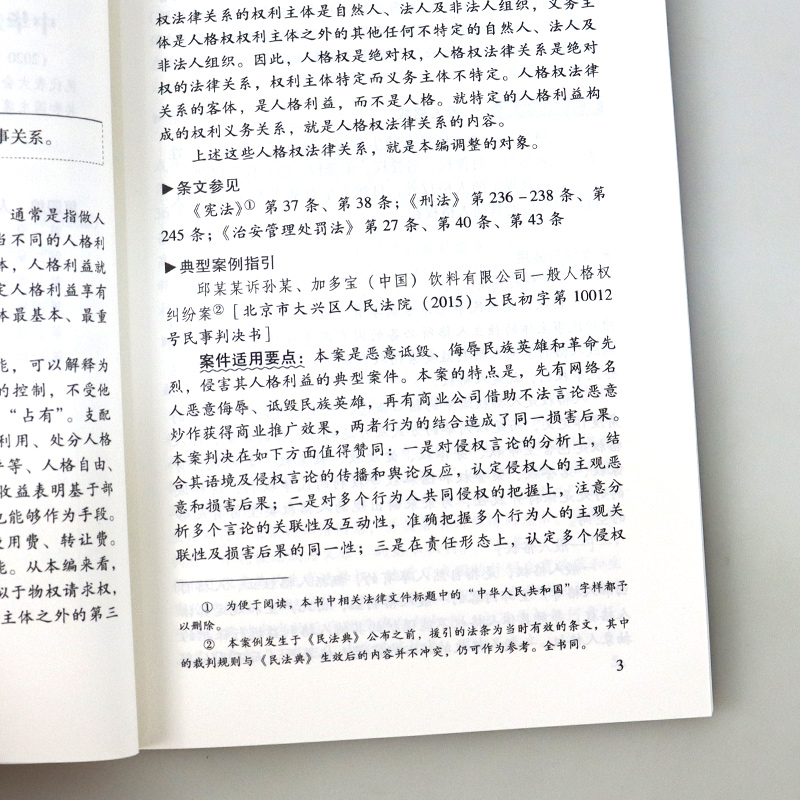 事关系。
通常是指做人
当不同的人格利
体，人格利益就
定人格利益享有
体最基本、最重
能，可以解释为
的控制，不受他
“占有”。支配
利用、处分人格
等、人格自由、
收益表明基于部
也能够作为手段。
使用费、转让费。
能。从本编来看，
似于物权请求权，
主体之外的第三
权法律关系的权利主体是自然人、法人及非法人组织，义务主
体是人格权权利主体之外的其他任何不特定的自然人、法人及
非法人组织。因此，人格权是绝对权，人格权法律关系是绝对
权的法律关系，权利主体特定而义务主体不特定。人格权法律
关系的客体，是人格利益，而不是人格。就特定的人格利益构
成的权利义务关系，就是人格权法律关系的内容。
上述这些人格权法律关系，就是本编调整的对象。
▶条文参见
《宪法》① 第 37 条、第 38 条；《刑法》第 236－238 条、第
245 条；《治安管理处罚法》第 27 条、第 40 条、第 43 条
▶典型案例指引
邱某某诉孙某、加多宝（中国）饮料有限公司一般人格权
纠纷案②［北京市大兴区人民法院（2015）大民初字第 10012
号民事判决书］
案件适用要点：本案是恶意诋毁、侮辱民族英雄和革命先
烈，侵害其人格利益的典型案件。本案的特点是，先有网络名
人恶意侮辱、诋毁民族英雄，再有商业公司借助不法言论恶意
炒作获得商业推广效果，两者行为的结合造成了同一损害后果。
本案判决在如下方面值得赞同：一是对侵权言论的分析上，结
合其语境及侵权言论的传播和舆论反应，认定侵权人的主观恶
意和损害后果；二是对多个行为人共同侵权的把握上，注意分
析多个言论的关联性及互动性，准确把握多个行为人的主观关
联性及损害后果的同一性；三是在责任形态上，认定多个侵权
① 为便于阅读，本书中相关法律文件标题中的“中华人民共和国”字样都予
以删除。
② 本案例发生于《民法典》公布之前，援引的法条为当时有效的条文，其中
的裁判规则与《民法典》生效后的内容并不冲突，仍可作为参考。全书同。
3